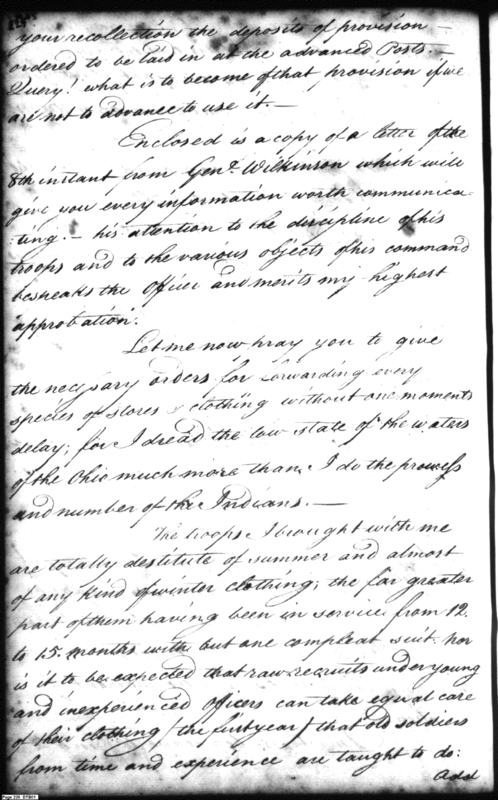 your recollection the deposits of provision —
ordered to be laid in at the advanced Posts. —
Query! what is to become of that provision if we
are not to advance to use it. —
Enclosed is a copy of a letter of the
8th instant from Genl. Wilkinson which will
give you every information worth communica-
:ting. — his attention to the discipline of his
troops and to the various objects of his command
bespeaks the Officer and merits my highest
approbation.
Let me now pray you to give
the necessary orders for forwarding every
species of stores & clothing without one moments
delay; for I dread the low state of the waters
of the Ohio much more than I do the prowess
and number of the Indians. —
The troops I brought with me
are totally destitute of summer and almost
of any kind of winter clothing; the far greater
part of them having been in service from 12.
to 15. months with but one compleat suit. nor
is it to be expected that raw recruits under young
and inexperienced Officers can take equal care
of their clothing / the first year / that old soldiers
from time and experience are taught to do:
Add